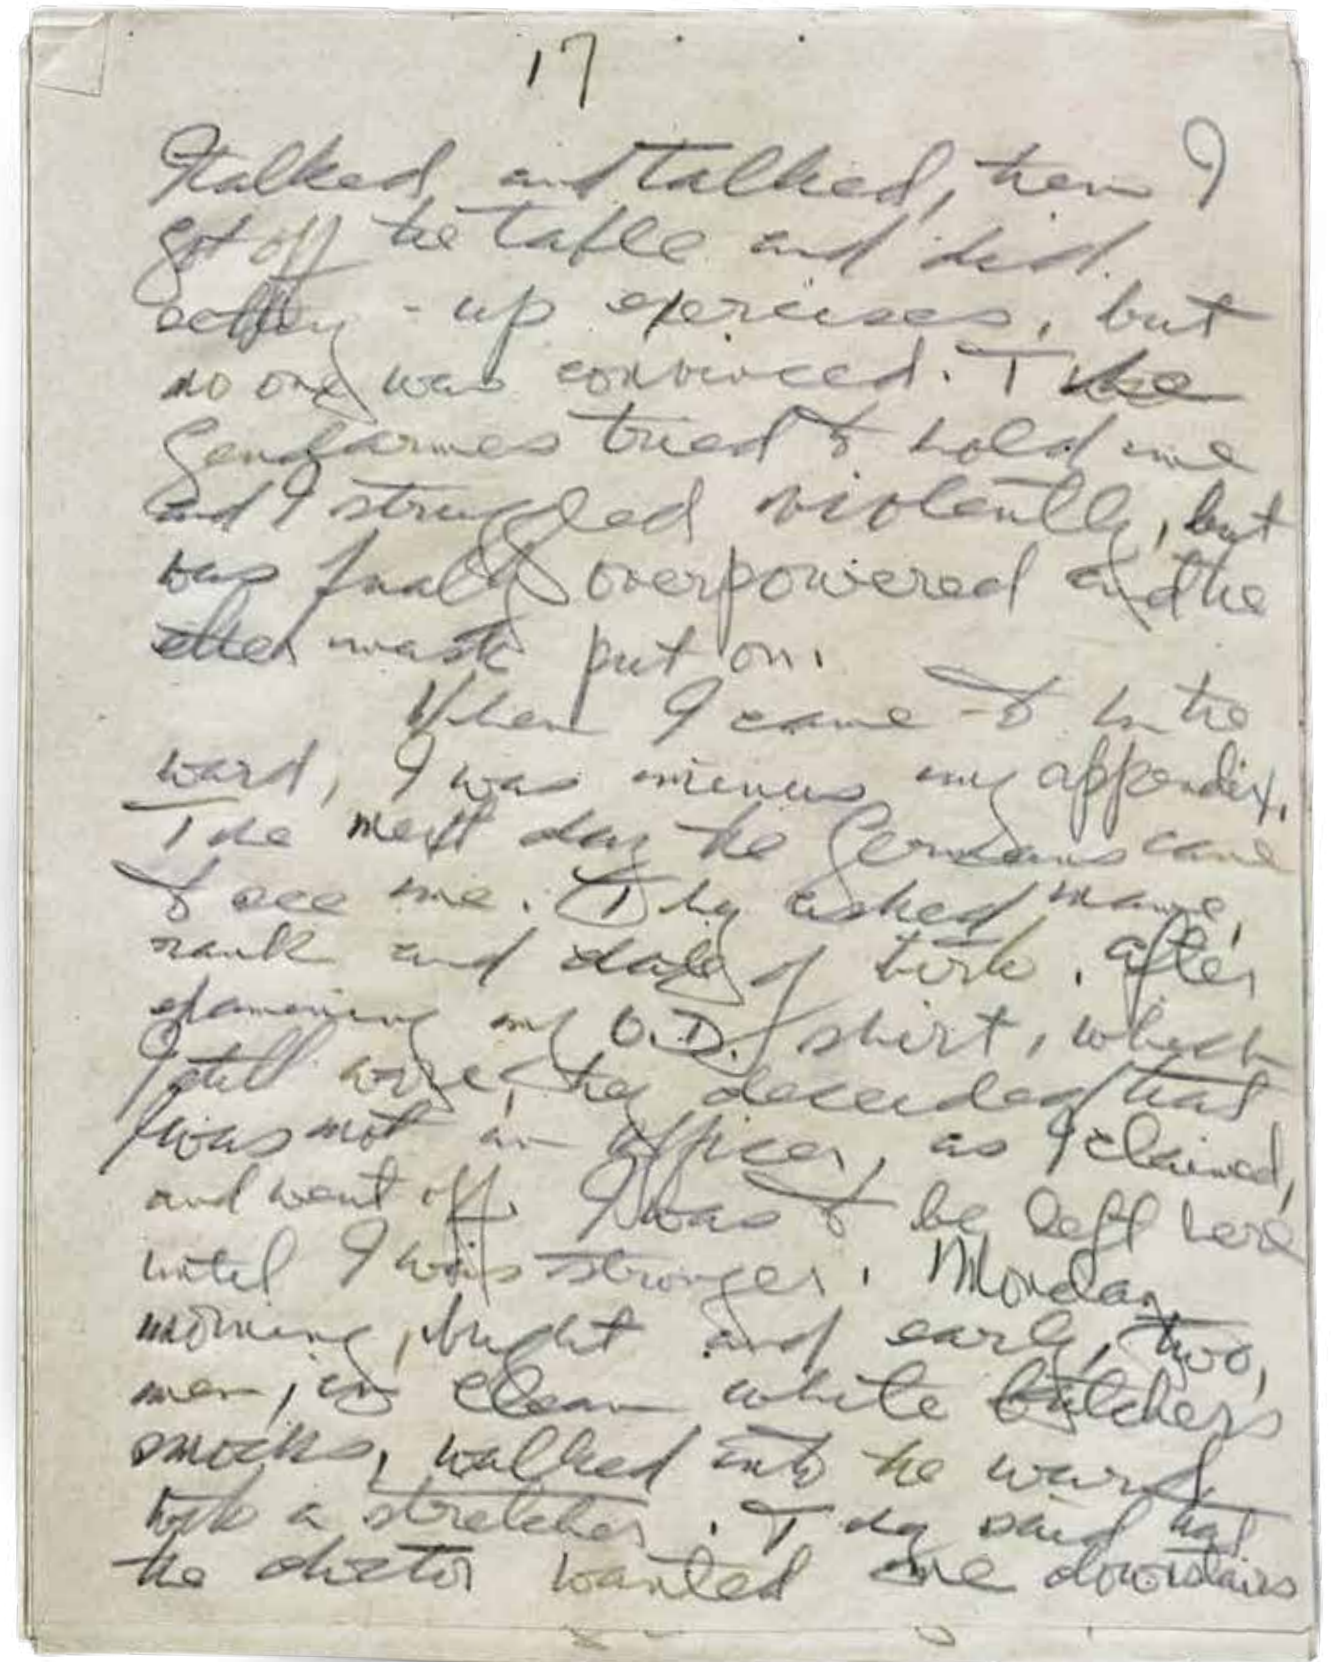 17
I talked and talked, then I
got off the table and did
setting-up exercises, but
no one was convinced. The
Gendarmes tried to hold me
and I struggled violently, but
was finally overpowered and the
ether mask put on.
When I came to in the
ward, I was minus my appendix.
The next day the Germans came
to see me. They asked name,
rank and date of birth. After
examining my O.D. shirt, which
I still wore, they decided that
I was not an officer, as I claimed,
and went off. I was to be left here
until I was stronger. Monday
morning, bright and early, two,
men, in clean white butchers
smocks, walked into the ward
with a stretcher. They said that
the doctor wanted me downstairs